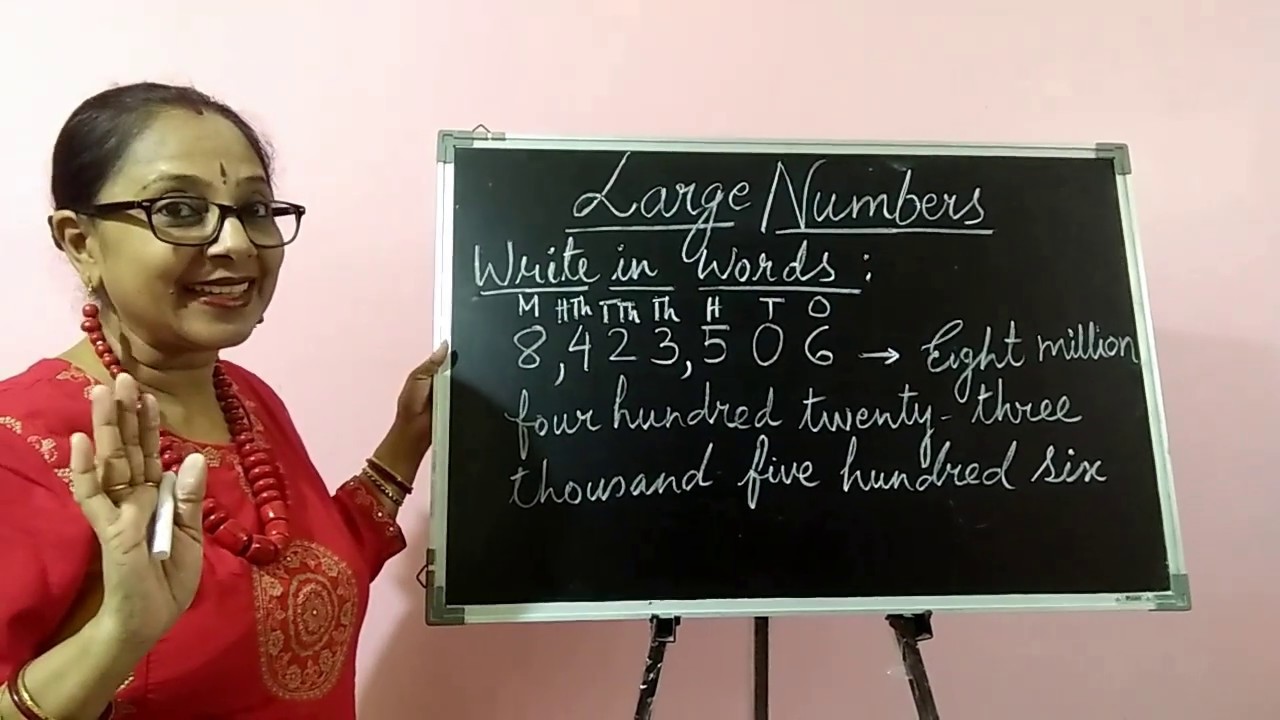 Large Numbers
Write in Words:
M HTh TTh Th H T O
8,423,506 → Eight million
four hundred twenty-three
thousand five hundred six